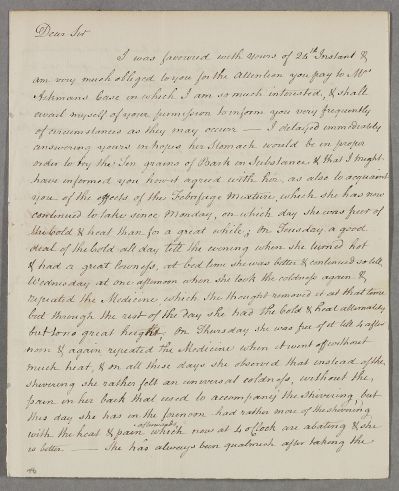 Dear Sir
I was favoured with yours of 24th Instant &
am very much obliged to you for the Attention you pay to Mrs
Case in which I am so much interested, & shall
avail myself of your permission to inform you very frequently
of circumstances as they may occur — I delayed immediately
answering yours in hopes her Stomach would be in proper
order to try the Ten grains of Bark in Substance & that I might
have informed you how it agreed with her, as also to acquaint
you of the effects of the Febrifuge Mixture, which she has now
continued to take since Monday, on which day she was freer of
the Cold & heat than for a great while; On Tuesday a good
deal of the Cold all day till the evening when she turned hot
& had a great lowness, at bed time she was better & continued so till
Wednesday at one afternoon when she took the coldness again &
repeated the Medicine which she thought removed it at that time
but through the rest of the day she had the Cold & heat alternately
but to no great height; On Thursday she was free of it till 4 after
noon & again repeated the Medicine when it went off without
much heat, & on all these days she observed that instead of the
shivering she rather felt an universal coldness, without the
pain in her back that used to accompany the shivering, but
this day she has in the forenoon had rather more of the shivering
afterwards
with the heat & pain which now at 4 oClock are abating & she
is better — She has always been qualmish after taking the